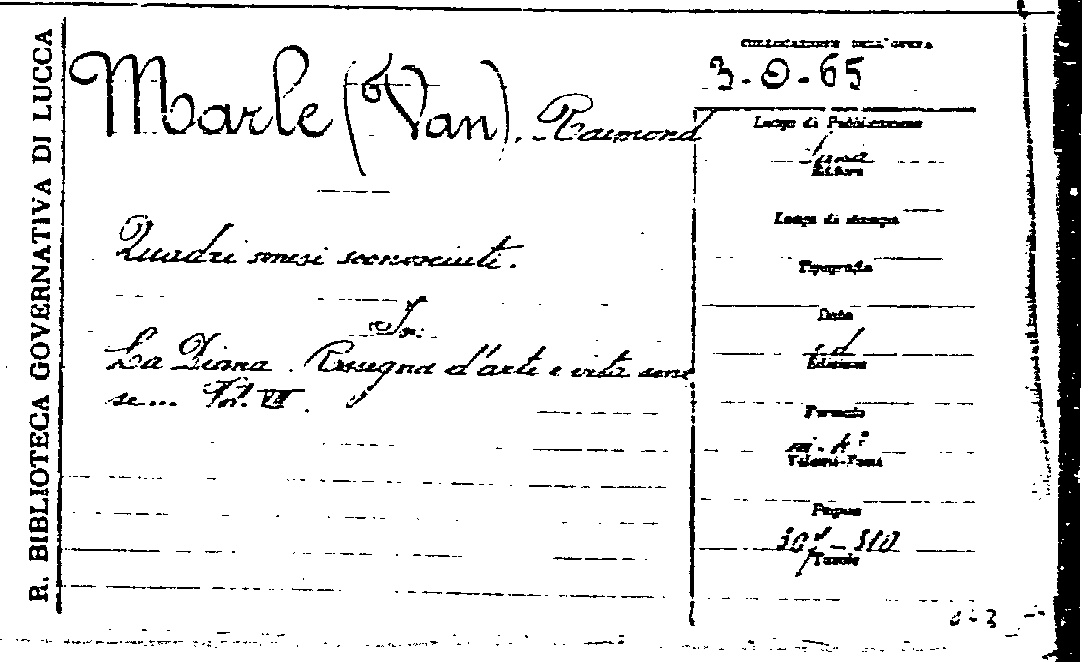 R. BIBLIOTECA GOVERNATIVA DI LUCCA
Marle (Van). Raimond
Quadri senesi sconosciuti.
In:
La Diana. Rassegna d'arte e vita sene
se... Vol.
COLLOCAZIONE DELL'OPERA
3-O-65
Luogo di Pubblicazione
Siena
Editore
Luogo di stampa
Tipografia
Data
s.d.
Edizione
Formato
in-4°
Volumi-Tomi
Pagine
307-310
Tavole